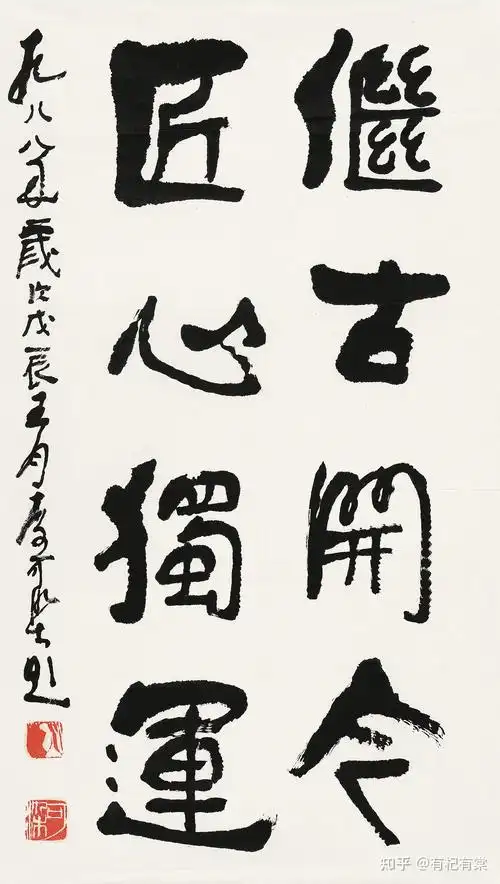 繼古開今
匠心獨運
一九八八年歲次戊辰五月李可染題
李
可染
知乎 @有杞有棠